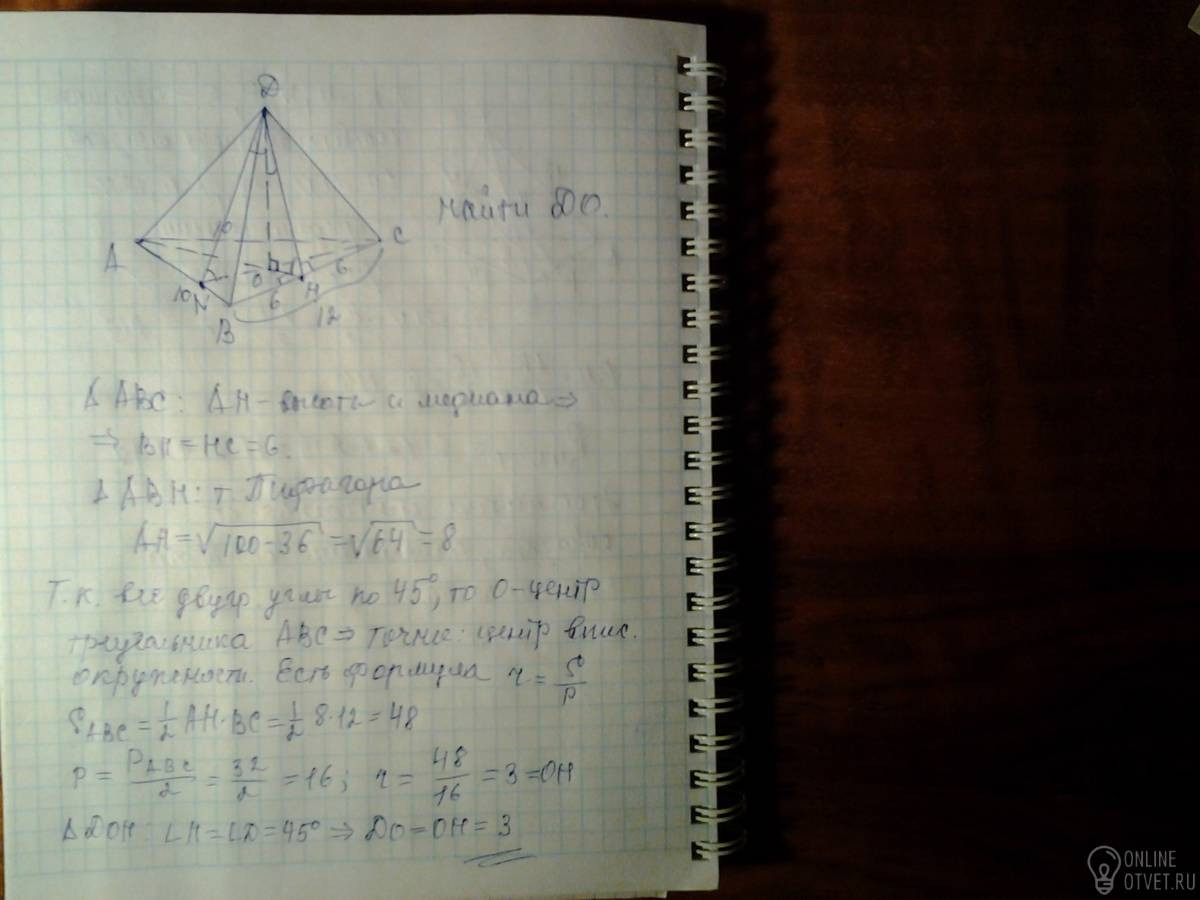 D
Найти DO.
10
A
C
O
6
H
10
N
6
B
12
Δ ABC: AH - высота и медиана ⇒
⇒ BH = HC = 6.
Δ ABH: т. Пифагора
AH = √100-36 = √64 = 8
Т.к. все двугр углы по 45°, то O - центр
треугольника ABC ⇒ точнее: центр впис.
окружности. Есть формула r = S/p
S ABC = 1/2 AH·BC = 1/2 8·12 = 48
p = P ABC/2 = 32/2 = 16; r = 48/16 = 3 = OH
Δ DOH: ∠H = ∠D = 45° ⇒ DO = OH = 3
ONLINE
OTVET.RU